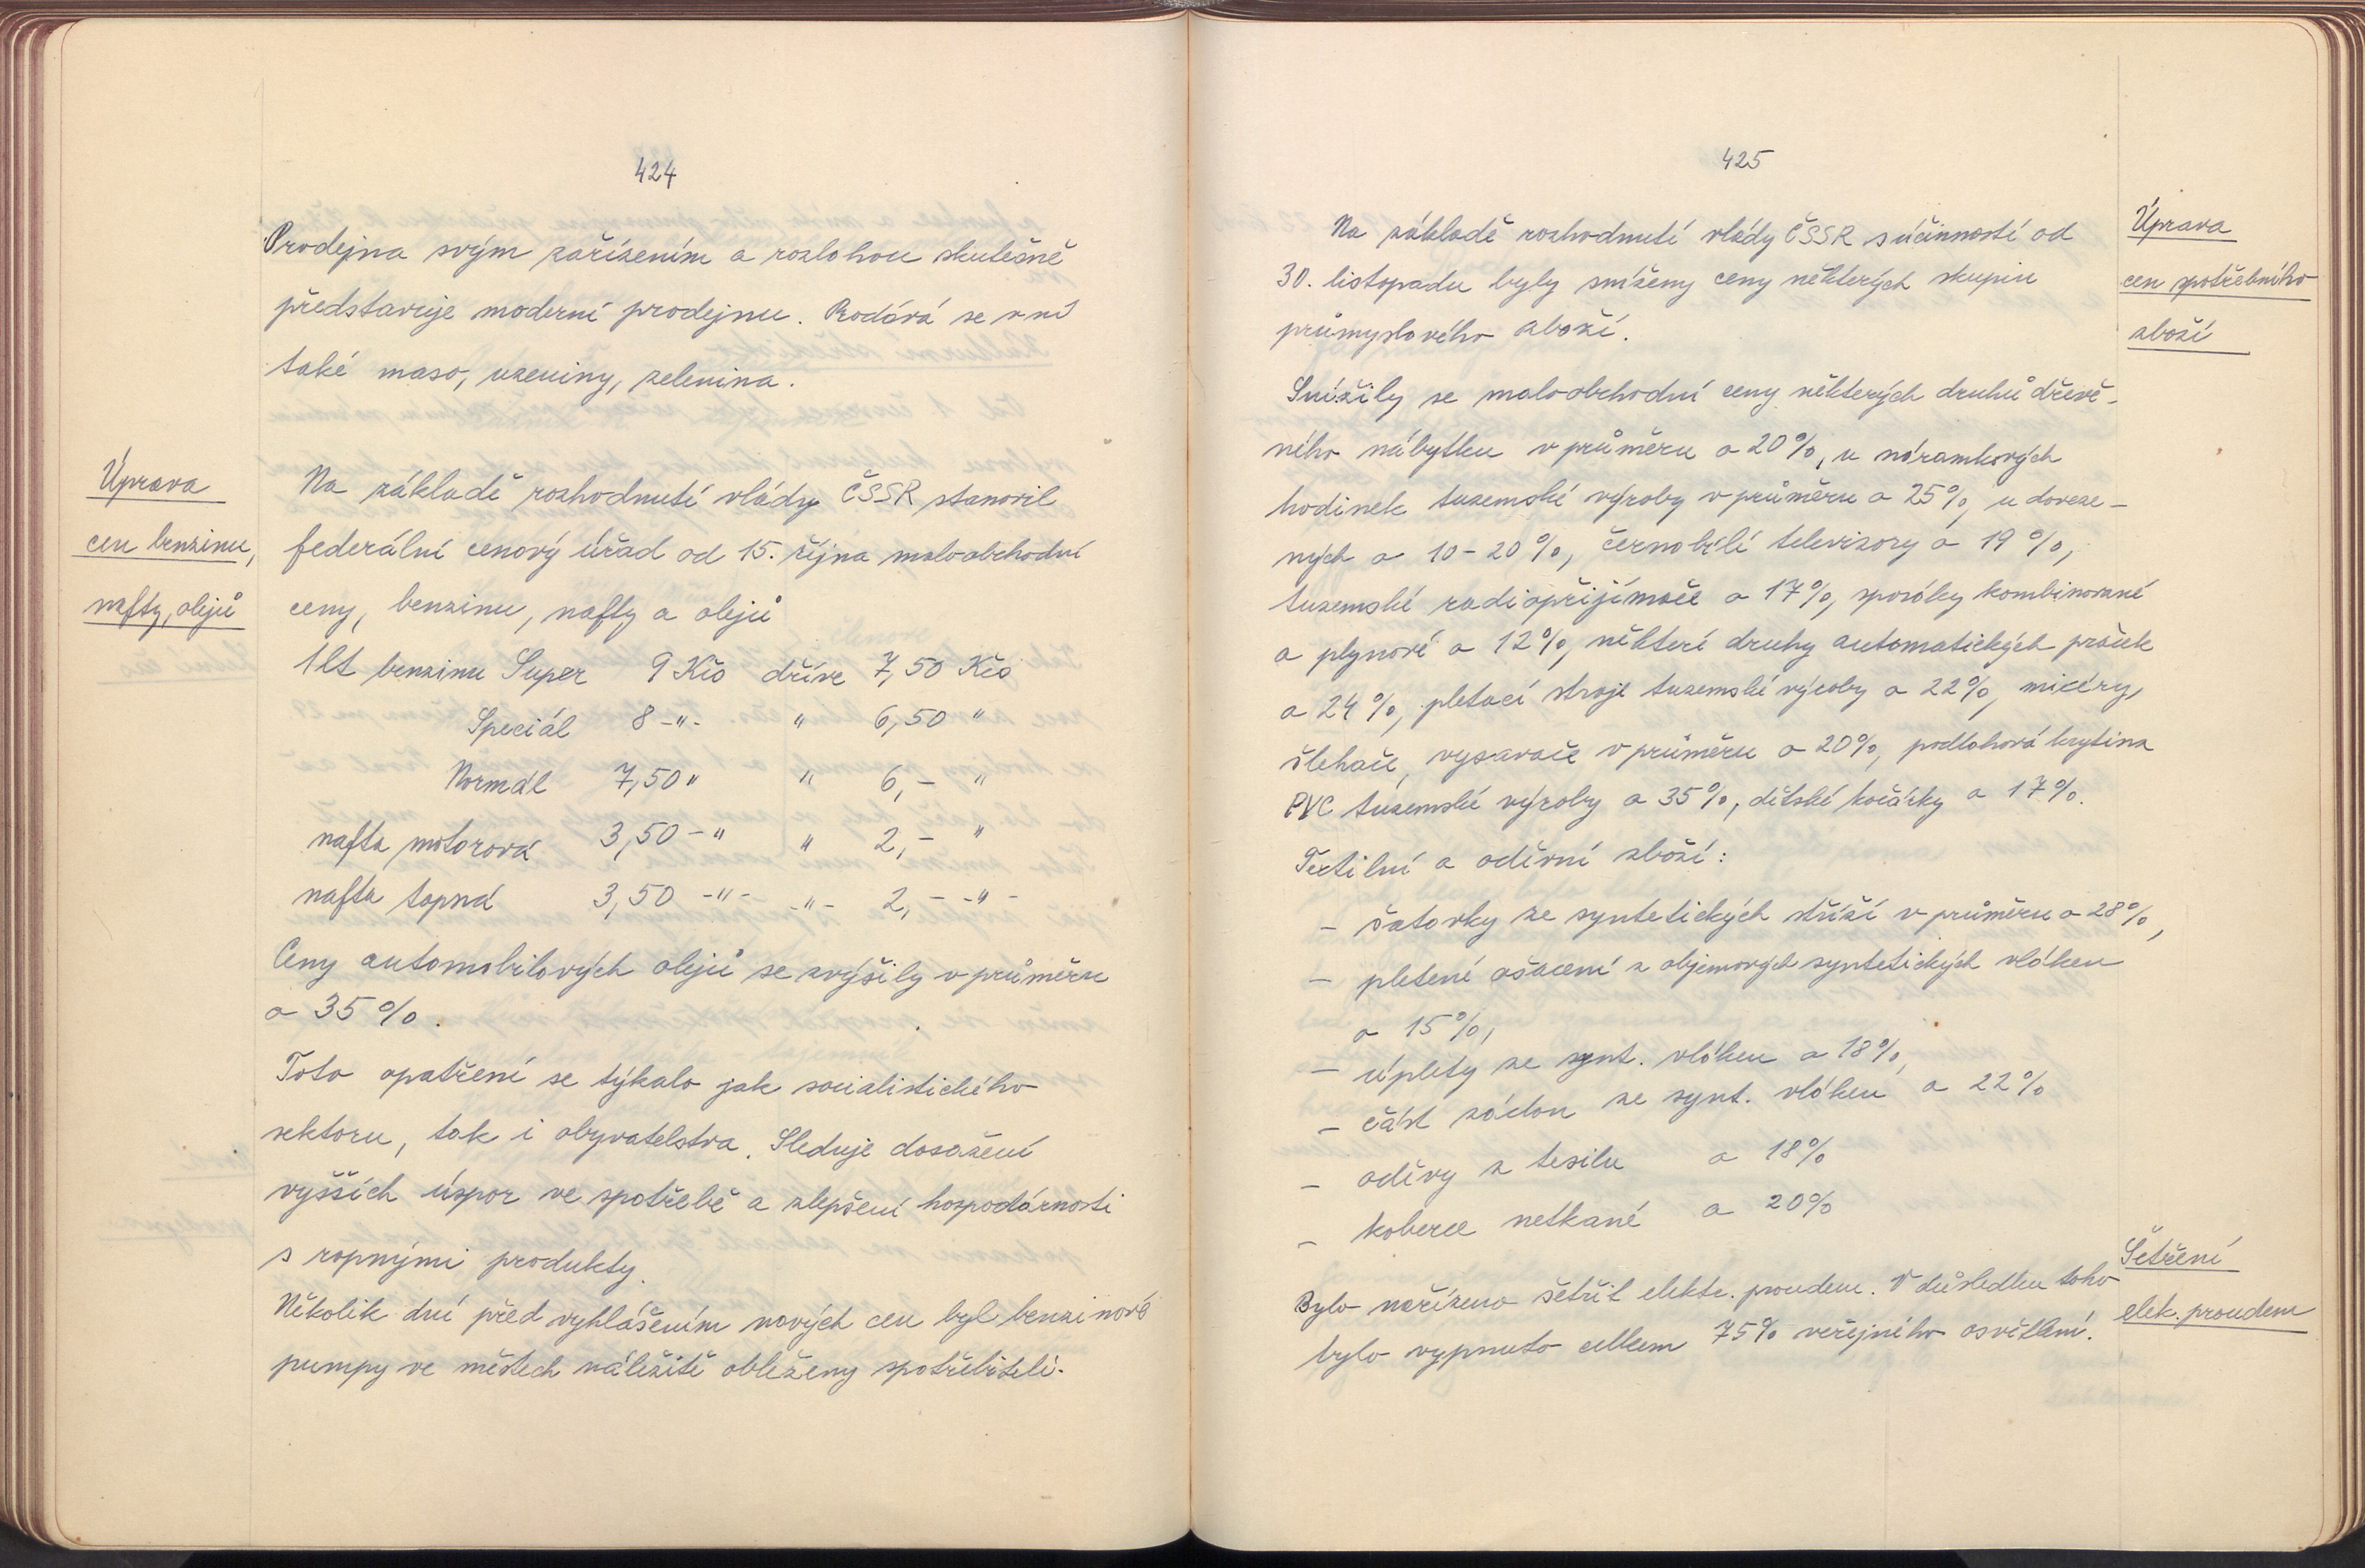 424
Prodejna svým zařízením a rozlohou skutečně
představuje moderní prodejnu. Prodává se v ní
také maso, uzeniny, zelenina.
Úprava
cen benzinu,
nafty, olejů
Na základě rozhodnutí vlády ČSSR stanovil
federální cenový úřad od 15. října maloobchodní
ceny, benzinu, nafty a olejů
1 lt benzinu Super 9 Kčs dříve 7,50 Kčs
Speciál 8 -"- " 6,50 "
Normál 7,50 " " 6,- "
nafta motorová 3,50 -" " 2,- "
nafta topná 3,50 -"- -"- 2,- -"-
Ceny automobilových olejů se zvýšily v průměru
o 35%.
Toto opatření se týkalo jak socialistického
sektoru, tak i obyvatelstva. Sleduje dosažení
vyšších úspor ve spotřebě a zlepšení hospodárnosti
s ropnými produkty.
Několik dní před vyhlášením nových cen byl benzinové
pumpy ve městech náležitě obleženy spotřebiteli.
425
Úprava
cen spotřebního
zboží
Na základě rozhodnutí vlády ČSSR s účinností od
30. listopadu byly sníženy ceny některých skupin
průmyslového zboží.
Snížily se maloobchodní ceny některých druhů dřevě-
ného nábytku v průměru o 20%, u náramkových
hodinek tuzemské výroby v průměru o 25%, u doveze-
ných o 10-20%, černobílé televizory o 19%,
tuzemské radiopřijímače o 17%, sporáky kombinované
a plynové o 12%, některé druhy automatických praček
o 24%, pletací stroje tuzemské výroby o 22%, mixéry,
šlehače, vysavače v průměru o 20%, podlahová krytina
PVC tuzemské výroby o 35%, dětské kočárky o 17%.
Textilní a oděvní zboží:
- šatovky ze syntetických stříží v průměru o 28%,
- pletené ošacení z objemových syntetických vláken
o 15%,
- úplety ze synt. vláken o 18%,
- část záclon ze synt. vláken o 22%
- oděvy z tesilu o 18%
- koberce netkané o 20%
Šetření
elek. proudem
Bylo nařízeno šetřit elektr. proudem. V důsledku toho
bylo vypnuto celkem 75% veřejného osvětlení.